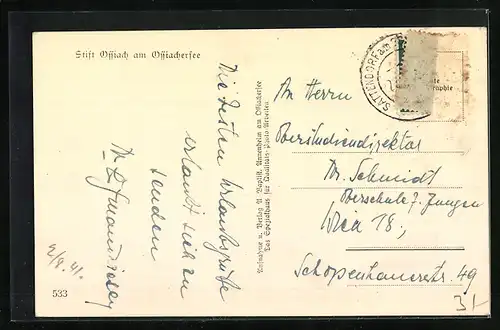 Stift Ossiach am Ossiachersee
Die besten Urlaubsgrüße
erlaubt sich zu
senden
Dr.
2/9. 41.
533
Aufnahme u. Verlag A. Bapist, Annenheim am Ossiachersee
Das Spezialhaus für Qualitäts-Photo-Arbeiten
SATTENDORF am
te
graphie
An Herrn
Oberstudiendirektor
Dr. Schmidt
Oberschule f. Jungen
Wien 18,
Schopenhauerstr. 49